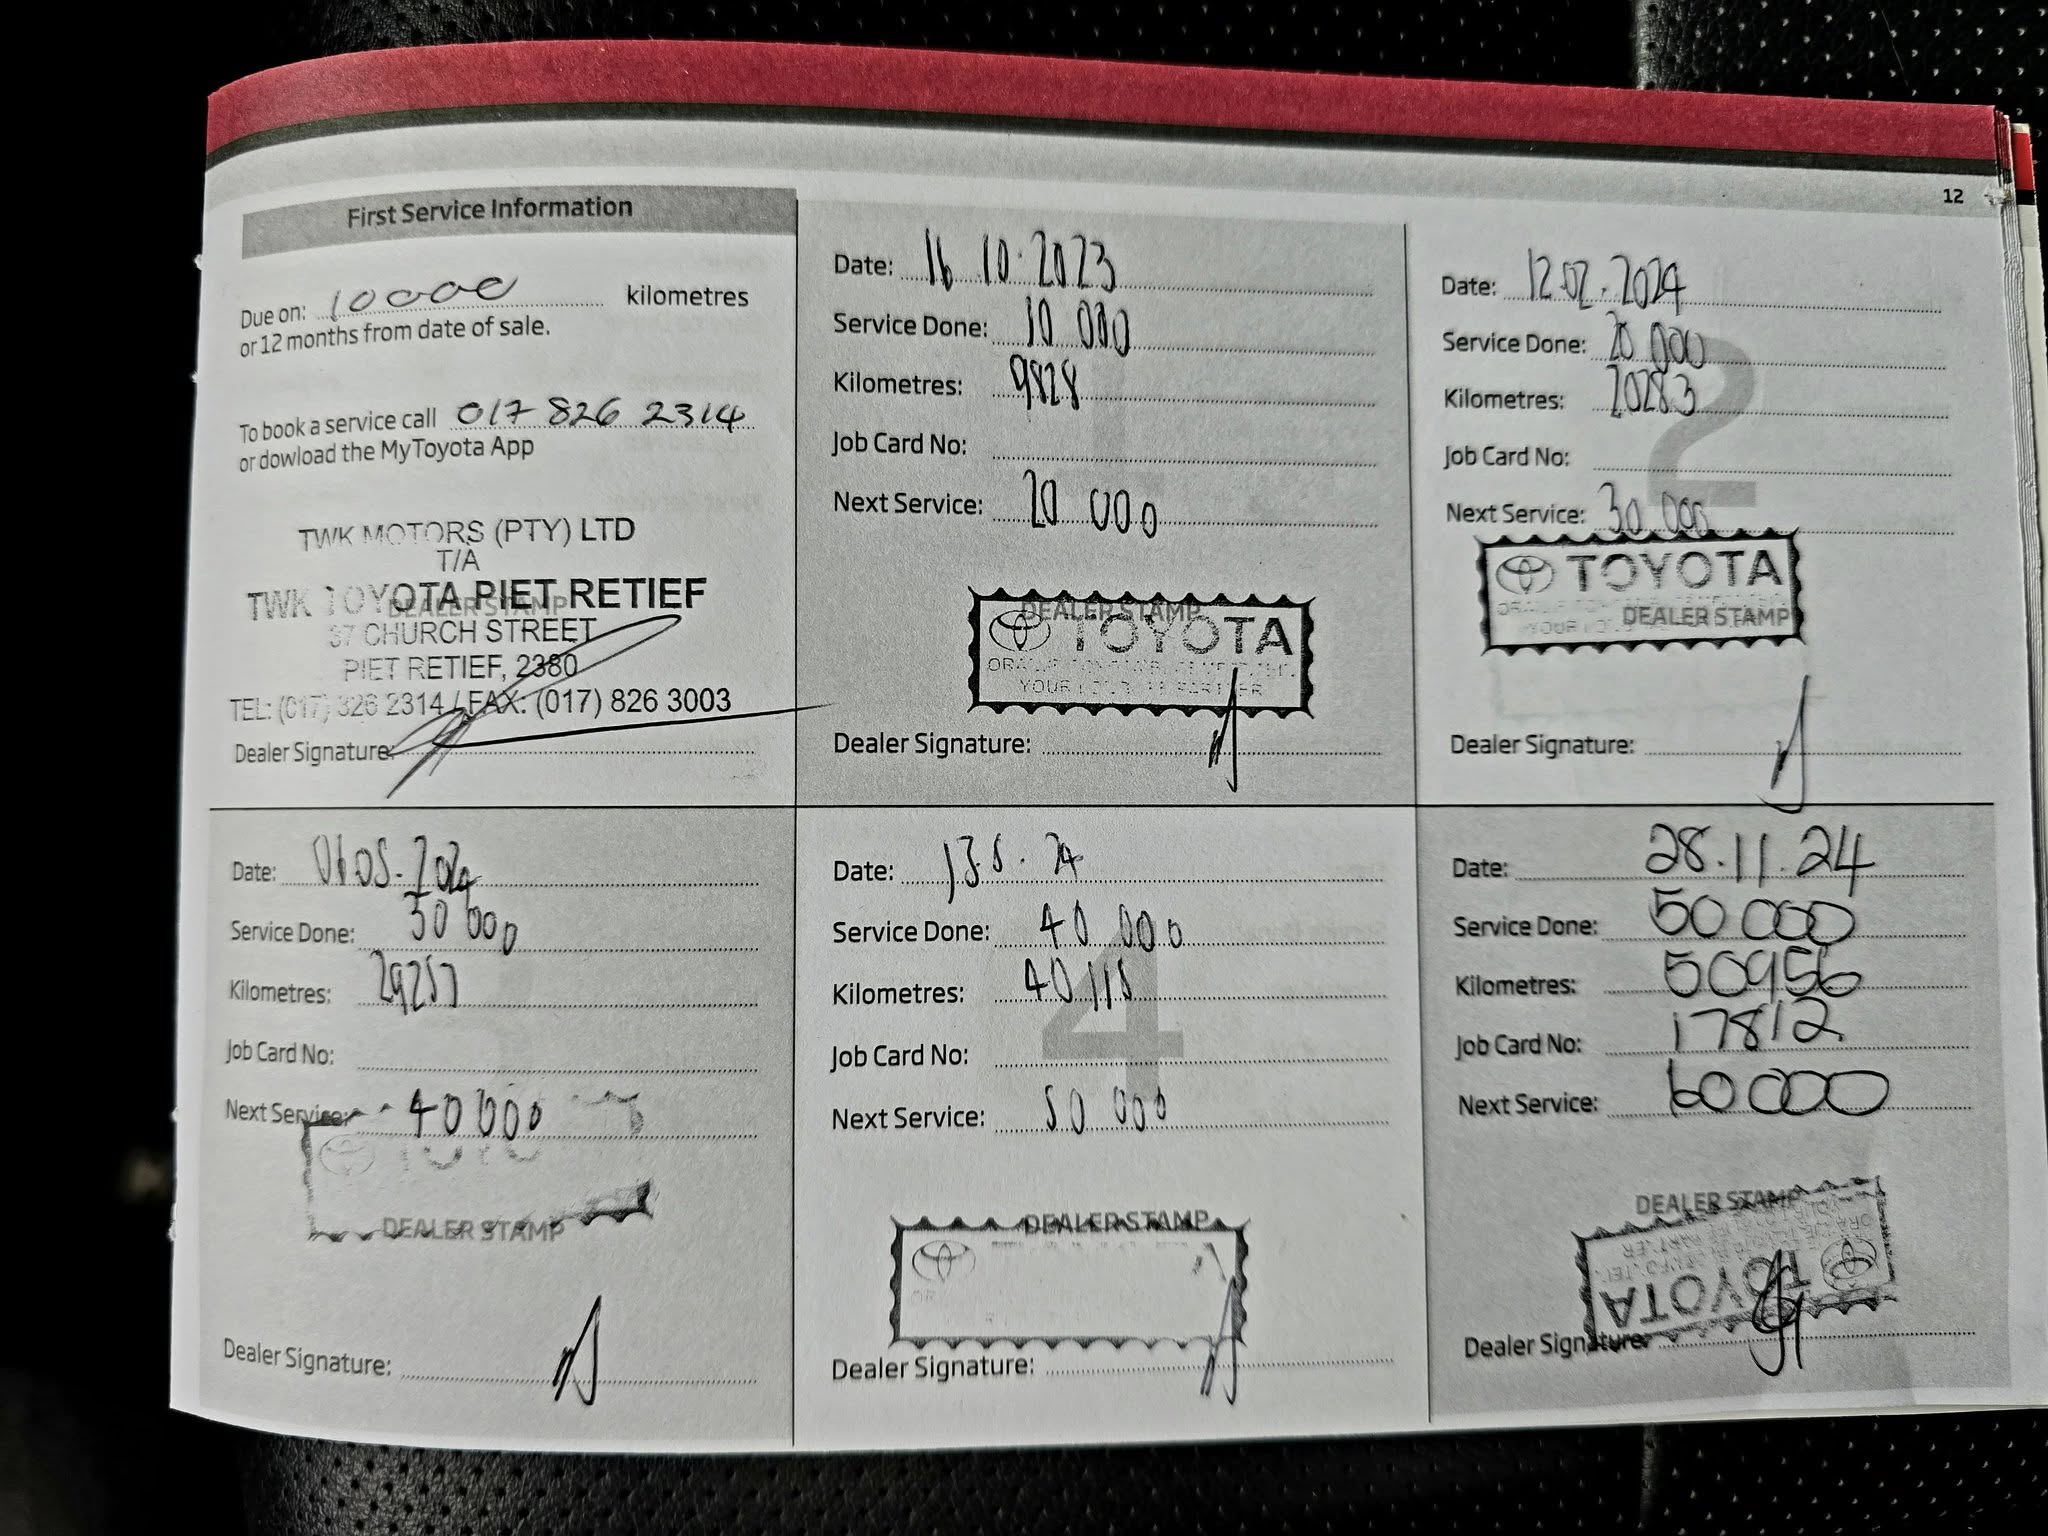 12
First Service Information
Due on: 10000 kilometres
or 12 months from date of sale.
To book a service call 017 826 2314
or dowload the MyToyota App
TWK MOTORS (PTY) LTD
T/A
TWK TOYOTA PIET RETIEF
DEALER STAMP
37 CHURCH STREET
PIET RETIEF, 2380
TEL: (017) 326 2314 / FAX: (017) 826 3003
Dealer Signature:
Date: 16.10.2023
Service Done: 10 000
Kilometres: 9828
Job Card No:
Next Service: 20 000
DEALER STAMP
TOYOTA
YOUR
Dealer Signature:
Date: 12.02.2024
Service Done: 20 000
Kilometres: 20283
Job Card No:
2
Next Service: 30 000
TOYOTA
DEALER STAMP
Dealer Signature:
Date: 06.05.2024
Service Done: 30 000
Kilometres: 29257
Job Card No:
Next Service: 40 000
DEALER STAMP
Dealer Signature:
Date: 13.8.24
Service Done: 40 000
Kilometres: 40118
4
Job Card No:
Next Service: 50 000
DEALER STAMP
Dealer Signature:
Date: 28.11.24
Service Done: 50 000
Kilometres: 50956
Job Card No: 17812
Next Service: 60 000
DEALER STAMP
TOYOTA
Dealer Signature: